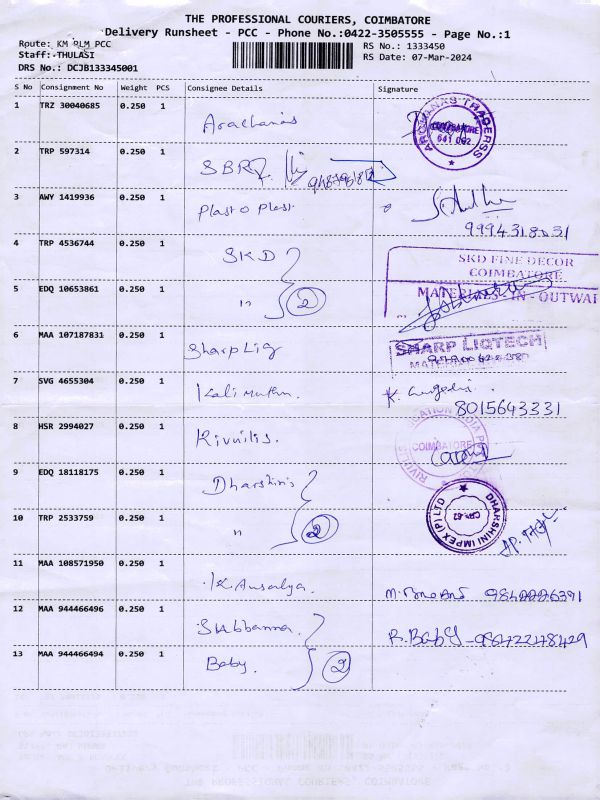 THE PROFESSIONAL COURIERS, COIMBATORE
Delivery Runsheet - PCC - Phone No.:0422-3505555 - Page No.:1
Route: KM RLM PCC
RS No.: 1333450
Staff: THULASI
RS Date: 07-Mar-2024
DRS No.: DCJB133345001
S No Consignment No Weight PCS Consignee Details Signature
1 TRZ 30040685 0.250 1 Arachanas
COIMBATORE
2 TRP 597314 0.250 1 SBR
3 AWY 1419936 0.250 1 Plast O Plast
9994318031
4 TRP 4536744 0.250 1 SKD
SKD FINE DECOR
COIMBATORE
5 EDQ 10653861 0.250 1 " 2
MATERIALS-IN-OUTWAR
6 MAA 107187831 0.250 1 Sharp Liq
SHARP LIQTECH
7 SVG 4655304 0.250 1 Kali Muthu.
8015643331
8 HSR 2994027 0.250 1 Rivulis.
COIMBATORE
9 EDQ 18118175 0.250 1 Dharshinis
DHARSHINI IMPEX (P) LTD
10 TRP 2533759 0.250 1 " 2
11 MAA 108571950 0.250 1 K. Ausalya.
12 MAA 944466496 0.250 1 Subbanna.
R. Baby - 9842248429
13 MAA 944466494 0.250 1 Baby. 2